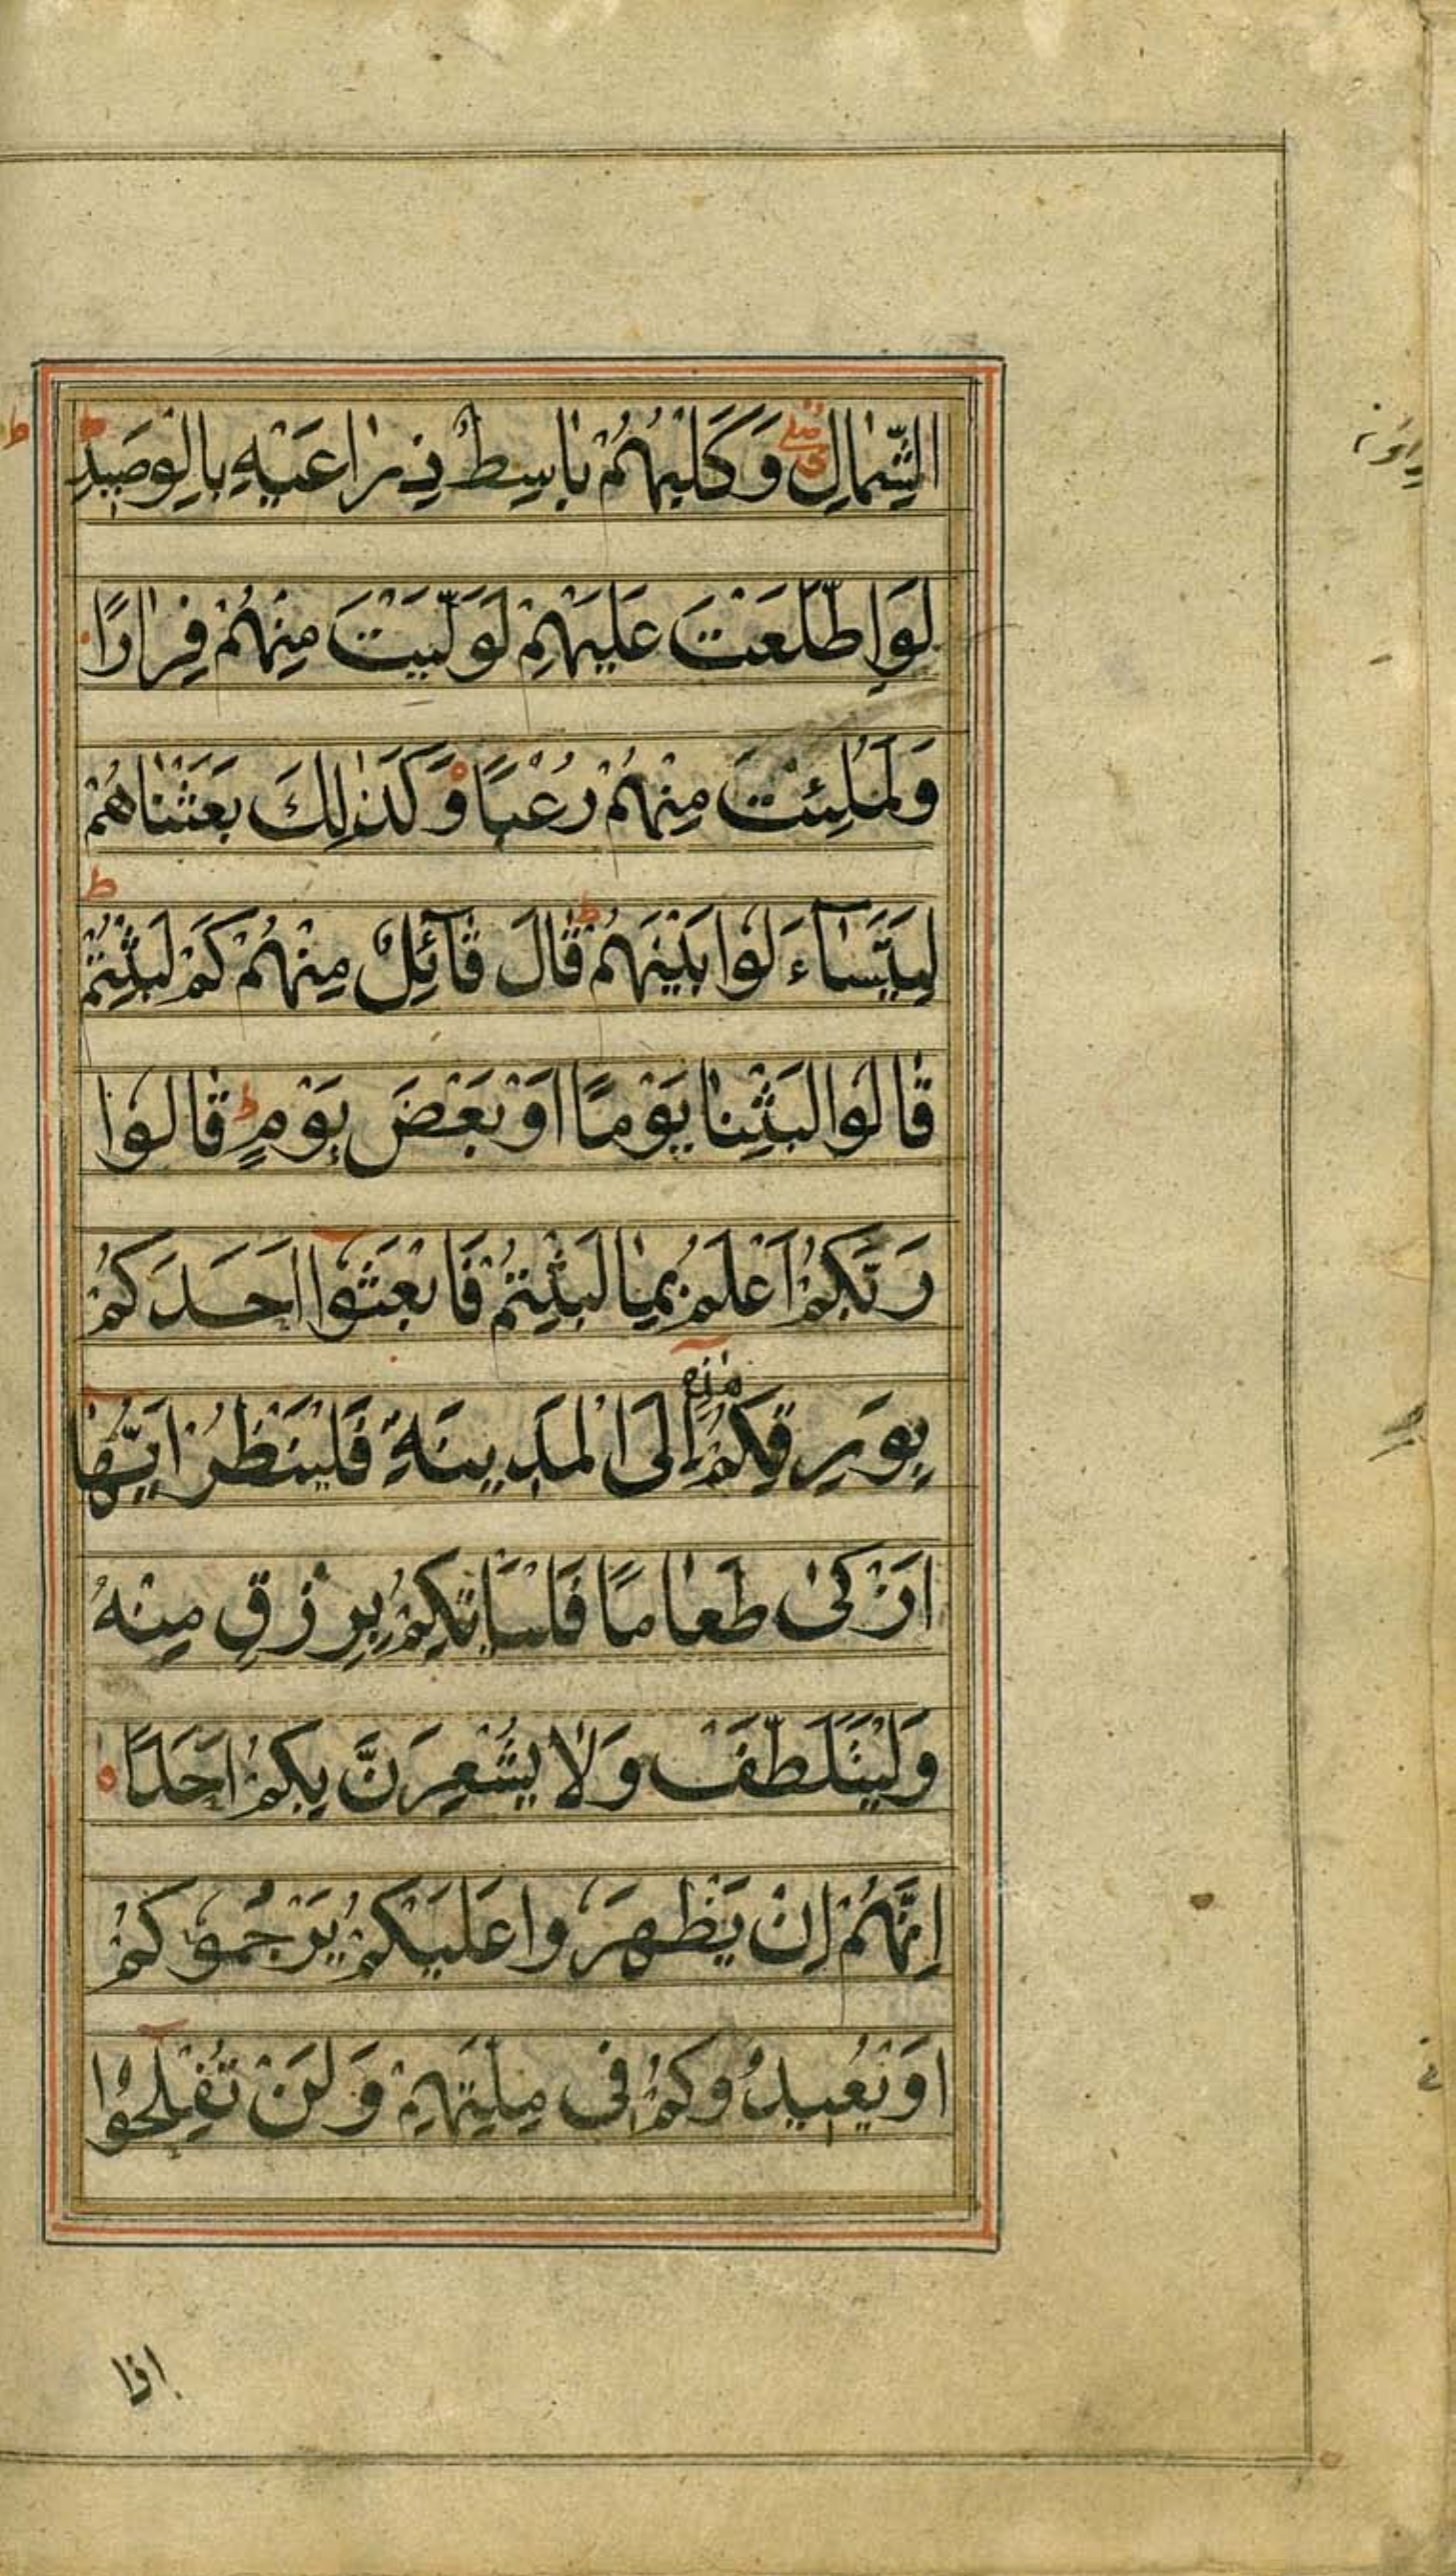 الشِّمَالِ وَكَلْبُهُمْ بَاسِطٌ ذِرَاعَيْهِ بِالْوَصِيدِ ط
لَوِ اطَّلَعْتَ عَلَيْهِمْ لَوَلَّيْتَ مِنْهُمْ فِرَارًا
وَلَمُلِئْتَ مِنْهُمْ رُعْبًا وَكَذٰلِكَ بَعَثْنَاهُمْ
لِيَتَسَآءَلُوا بَيْنَهُمْ ط قَالَ قَآئِلٌ مِنْهُمْ كَمْ لَبِثْتُمْ ط
قَالُوا لَبِثْنَا يَوْمًا اَوْ بَعْضَ يَوْمٍ ط قَالُوا
رَبُّكُمْ اَعْلَمُ بِمَا لَبِثْتُمْ فَابْعَثُوا اَحَدَكُمْ
بِوَرِقِكُمْ هٰذِهٖ اِلَى الْمَدِينَةِ فَلْيَنْظُرْ اَيُّهَا
اَزْكٰى طَعَامًا فَلْيَأْتِكُمْ بِرِزْقٍ مِنْهُ
وَلْيَتَلَطَّفْ وَلَا يُشْعِرَنَّ بِكُمْ اَحَدًا
اِنَّهُمْ اِنْ يَظْهَرُوا عَلَيْكُمْ يَرْجُمُوكُمْ
اَوْ يُعِيدُوكُمْ فِى مِلَّتِهِمْ وَلَنْ تُفْلِحُوا
اذا